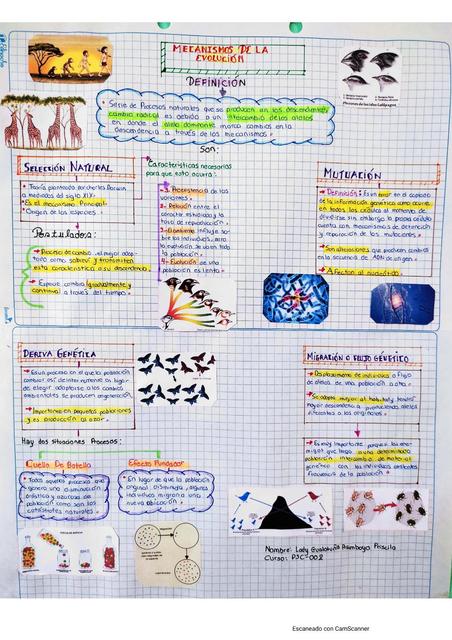 MECANISMOS DE LA
EVOLUCIÓN
DEFINICIÓN
• Serie de Procesos naturales que se producen en los descendientes
cambio radical es debido a un intercambio de los alelos
en donde el alelo dominante marca cambios en la
descendencia a través de los mecanismos.
Son:
SELECCIÓN NATURAL
• Teoría planteada por charles Darwin
a mediados del siglo XIX.
• Es el mecanismo Principal.
• Origen de las especies.
Postulados:
• Proceso de cambio, el mejor adap-
tará como sobrev. y transmitirá
esta característica a su descendencia.
• Especie cambia gradualmente y
continua a través del tiempo.
Características necesarias
para que esto ocurra:
1- Preexistencia de las
variaciones.
2- Relación entre el
carácter estudiado y la
tasa de reproducción.
3- El ambiente influye so-
bre los individuos, pero
la evolución se da en toda
la población.
4- Evolución de una
población es lenta.
MUTUACIÓN
Definición: Es un error en el copiado
de la información genética como ocurre
en todas las células al momento de
dividirse sin embargo la propia célula
cuenta con mecanismos de detención
y reparación de las mutaciones.
Son alteraciones que producen cambios
en la secuencia de ADN de origen.
Afectan al nucleótido.
DERIVA GENÉTICA
Es un proceso en el que la población
cambios ambientales se producen
Importante en pequeñas poblaciones
y es producción al azar.
Hay dos situaciones Procesos:
Cuello De Botella
• Todos aquellos procesos que
genera una disminución
drástica y azarosa de
población como son las
catástrofes naturales.
Efecto Fundador
• En lugar de que la población
original disminuya, algunos
individuos migran a una
nueva ubicación.
MIGRACIÓN O FLUJO GENÉTICO
Desplazamiento de individuos o flujo
de alelos de una población a otra.
Se adapta mejor al habitat y tendrá
mayor descendencia produciendo alelos
diferentes a los originarios.
Es muy importante porque los inmi-
grantes que llegan a una determinada
población intercambio de material
genético con los individuos
frecuencia de la población.
Nombre: Lady Gualotuña Asimbaya Priscila
Curso: PJC-002
Escaneado con CamScanner